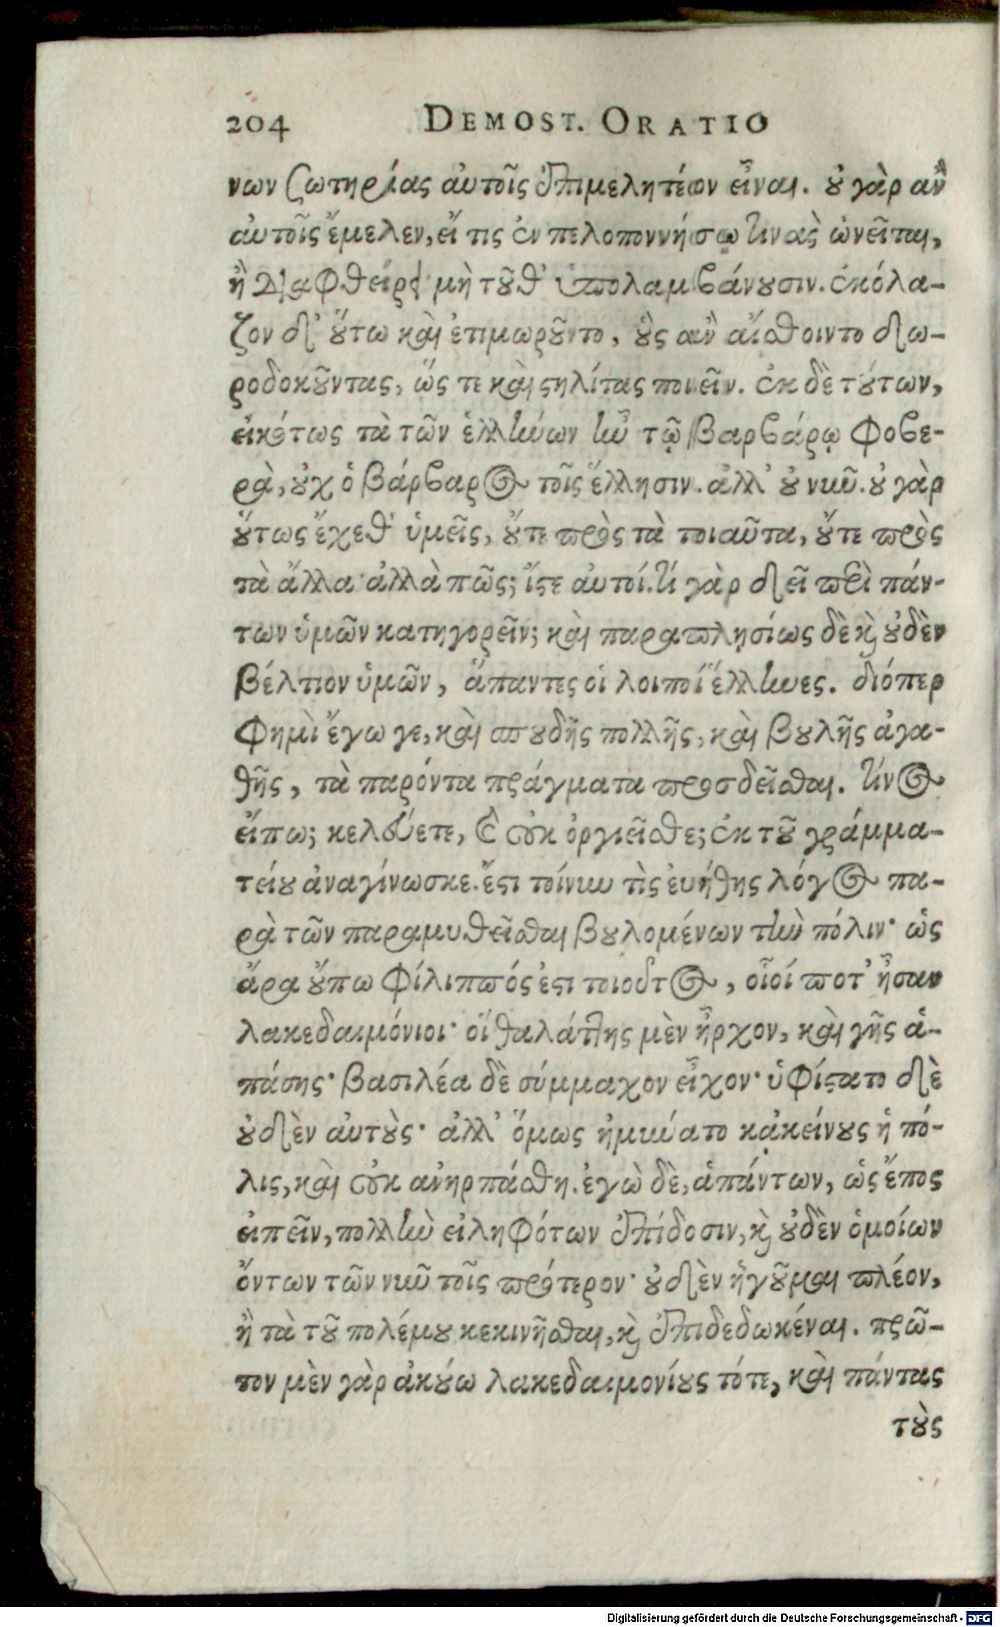 204 DEMOST. ORATIO
νων σωτηρίας αὐτοῖς ἐπιμελητέον εἶναι. οὐ γὰρ ἂν
αὐτοῖς ἔμελεν, εἴ τις ἐν πελοποννήσῳ τινὰς ὠνεῖται,
ἢ διαφθείρει μὴ τοῦθ' ὑπολαμβάνουσιν. ἐκόλα-
ζον δ' οὕτω καὶ ἐτιμωροῦντο, οὓς ἂν αἴσθοιντο δω-
ροδοκοῦντας, ὥς τε καὶ στηλίτας ποιεῖν. ἐκ δὲ τούτων,
εἰκότως τὰ τῶν ἑλλήνων ἦν τῷ βαρβάρῳ φοβε-
ρὰ, οὐχ ὁ βάρβαρος τοῖς ἕλλησιν. ἀλλ' οὐ νῦν. οὐ γὰρ
οὕτως ἔχεθ' ὑμεῖς, οὔτε πρὸς τὰ τοιαῦτα, οὔτε πρὸς
τὰ ἄλλα· ἀλλὰ πῶς; ἴστε αὐτοί. τί γὰρ δεῖ περὶ πάν-
των ὑμῶν κατηγορεῖν; καὶ παραπλησίως δὲ καὶ οὐδὲν
βέλτιον ὑμῶν, ἅπαντες οἱ λοιποὶ ἕλληνες. διόπερ
φημὶ ἔγωγε, καὶ σπουδῆς πολλῆς, καὶ βουλῆς ἀγα-
θῆς, τὰ παρόντα πράγματα προσδεῖσθαι. τίνος
εἴπω; κελεύετε, καὶ οὐκ ὀργιεῖσθε; ἐκ τοῦ γράμμα-
τείου ἀναγίνωσκε. ἔστι τοίνυν τὶς ἐυήθης λόγος πα-
ρὰ τῶν παραμυθεῖσθαι βουλομένων τὴν πόλιν· ὡς
ἄρα οὔπω φίλιππός ἐστι τοιοῦτος, οἷοί ποτ' ἦσαν
λακεδαιμόνιοι· οἳ θαλάττης μὲν ἦρχον, καὶ γῆς ἁ-
πάσης· βασιλέα δὲ σύμμαχον εἶχον· ὑφίστατο δὲ
οὐδὲν αὐτούς· ἀλλ' ὅμως ἠμύνατο κἀκείνους ἡ πό-
λις, καὶ οὐκ ἀνηρπάσθη. ἐγὼ δὲ, ἁπάντων, ὡς ἔπος
εἰπεῖν, πολλὴν εἰληφότων ἐπίδοσιν, καὶ οὐδὲν ὁμοίων
ὄντων τῶν νῦν τοῖς πρότερον· οὐδὲν ἡγοῦμαι πλέον,
ἢ τὰ τοῦ πολέμου κεκινῆσθαι, καὶ ἐπιδεδωκέναι. πρῶ-
τον μὲν γὰρ ἀκούω λακεδαιμονίους τότε, καὶ πάντας
τοὺς
Digitalisierung gefördert durch die Deutsche Forschungsgemeinschaft - DFG